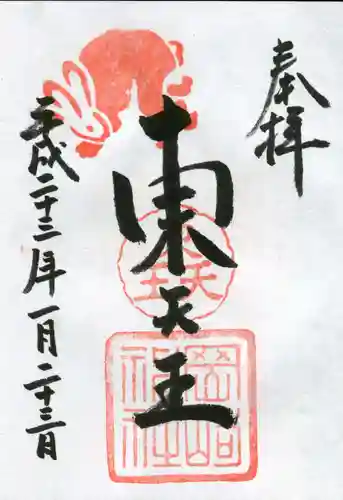 奉拝
東天王
東天王
岡崎
神社
平成二十三年一月二十三日